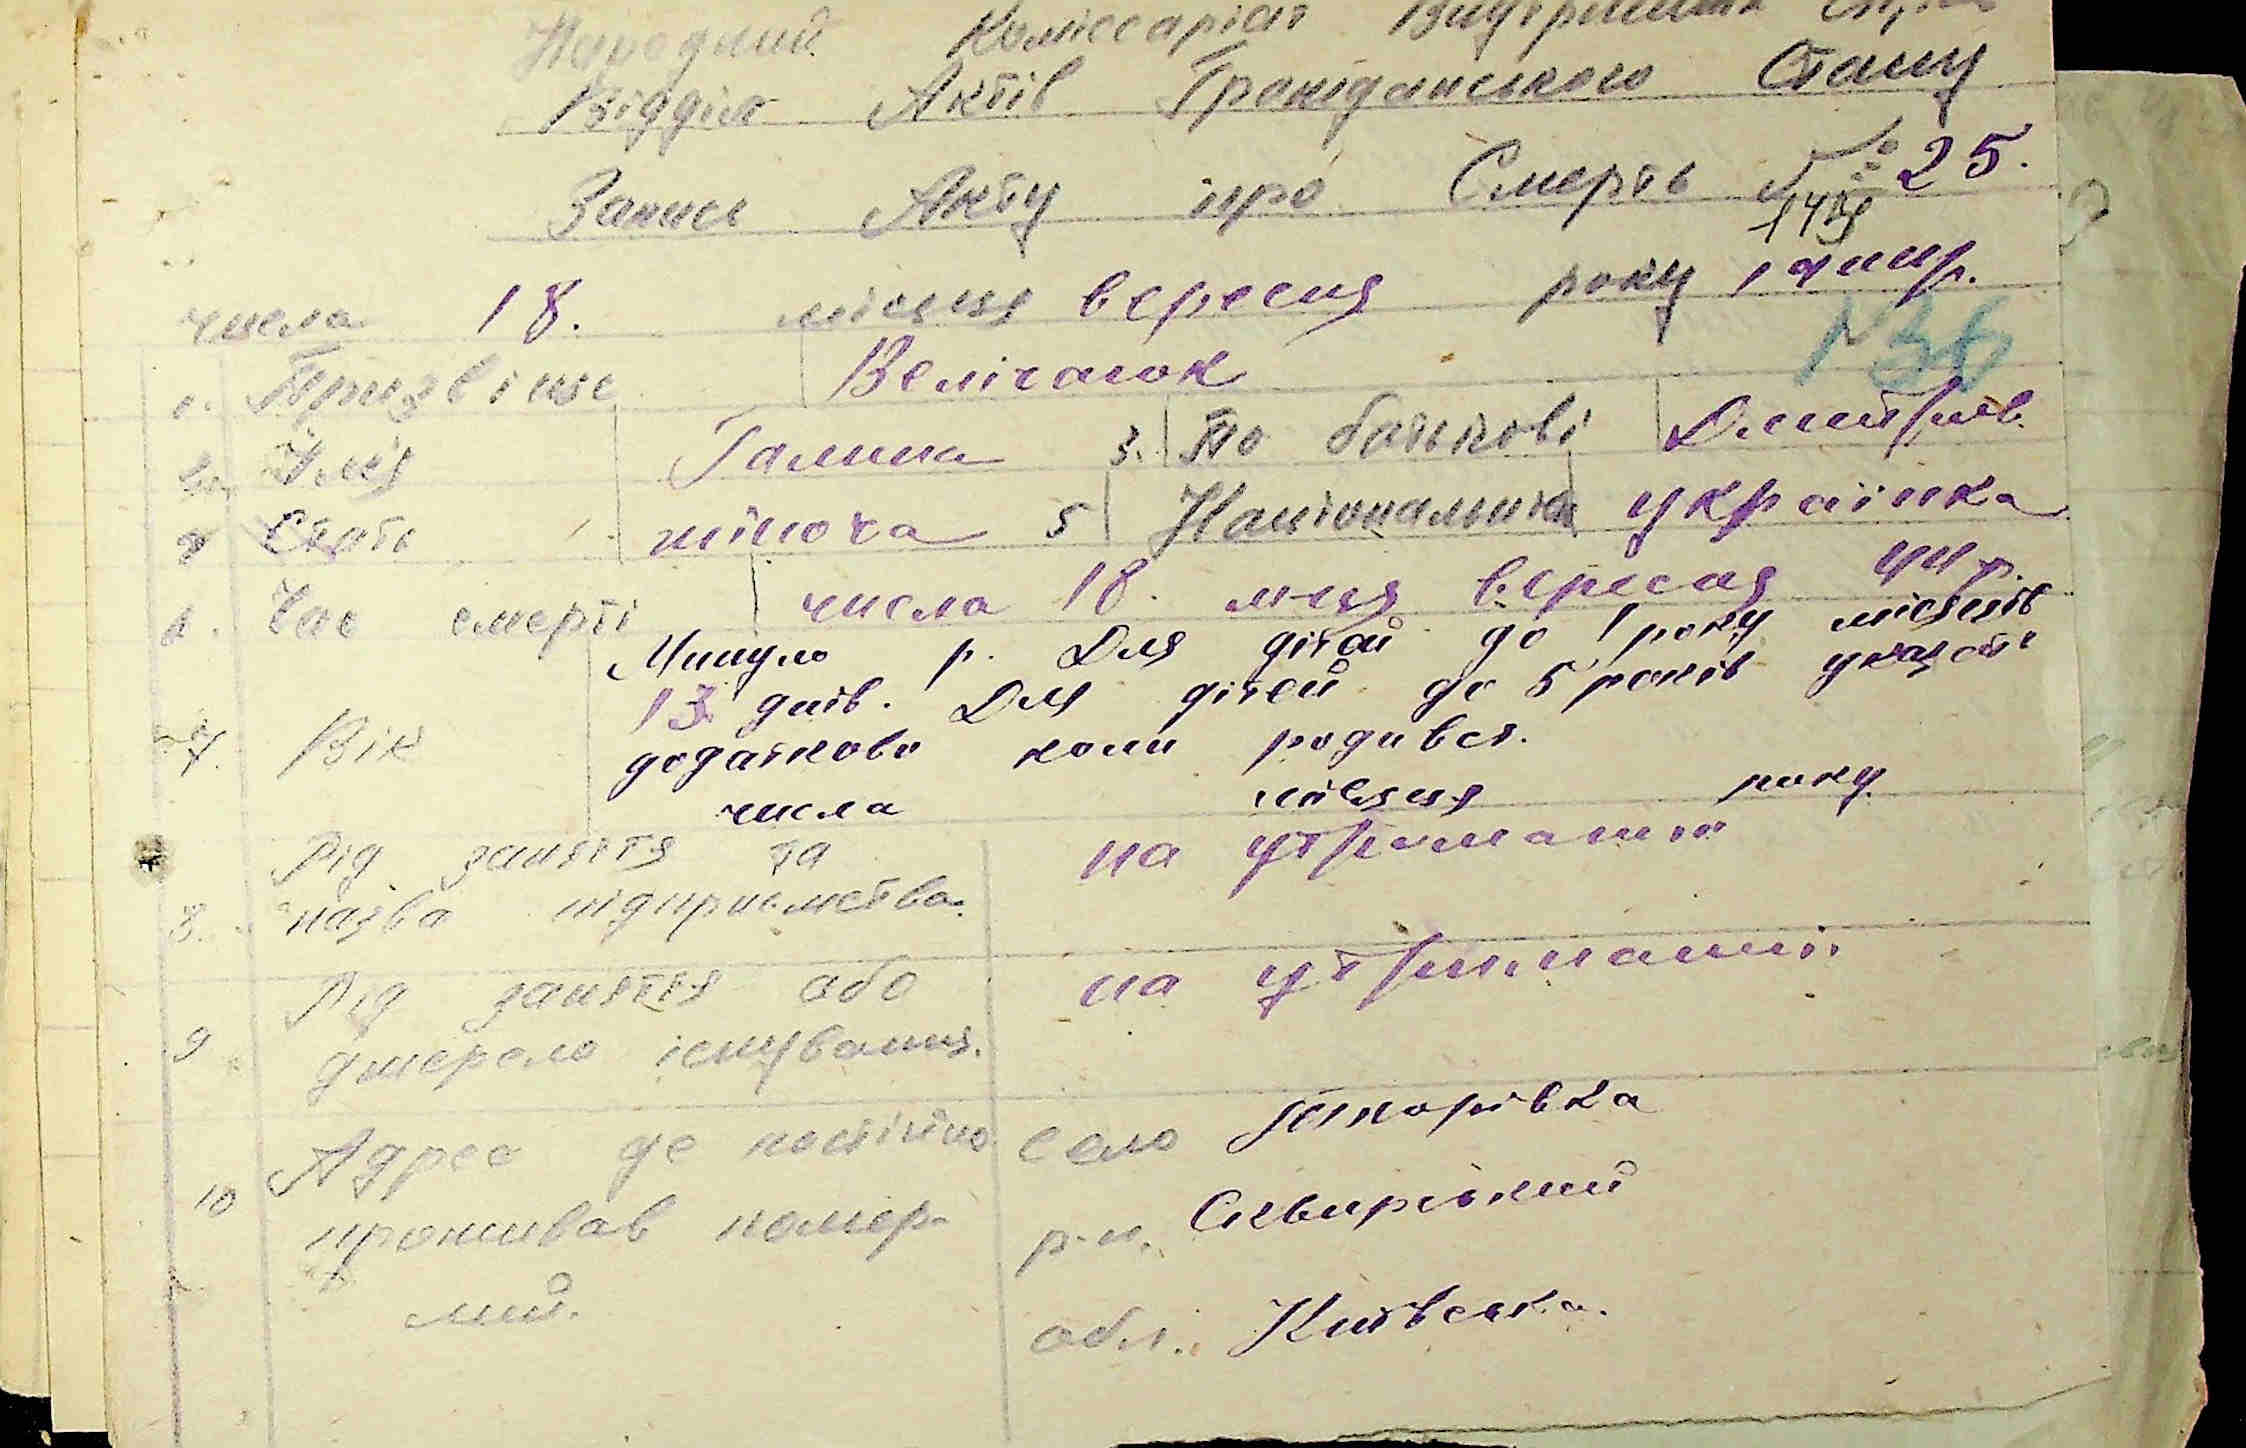 Народний Коміссаріат Внутрішніх
Відділ Актів Громідамського Стану
Запись Акту про Смерть № 25.
числа 18. місяця вересня року 1944р.
1. Призвіще Велічанок
2. Імя Галина 3. По батькові Дмитрів.
4 Стать жіноча 5 Національність українка
6. Час смерті числа 18. м-ця вересня 44 р.
Минуло р. Для дітей до 1 року місяців
13 днів. Для дітей до 5 років указати
7. Вік додатково коли родився.
числа місяця року
Рід заняття та на утриманні
8. назва підприємства.
Рід заняття або на утриманні
9 джерело існування.
Адрес де постійно село
10 проживав помер- р-н. Сквирський
лий. обл. Київська.